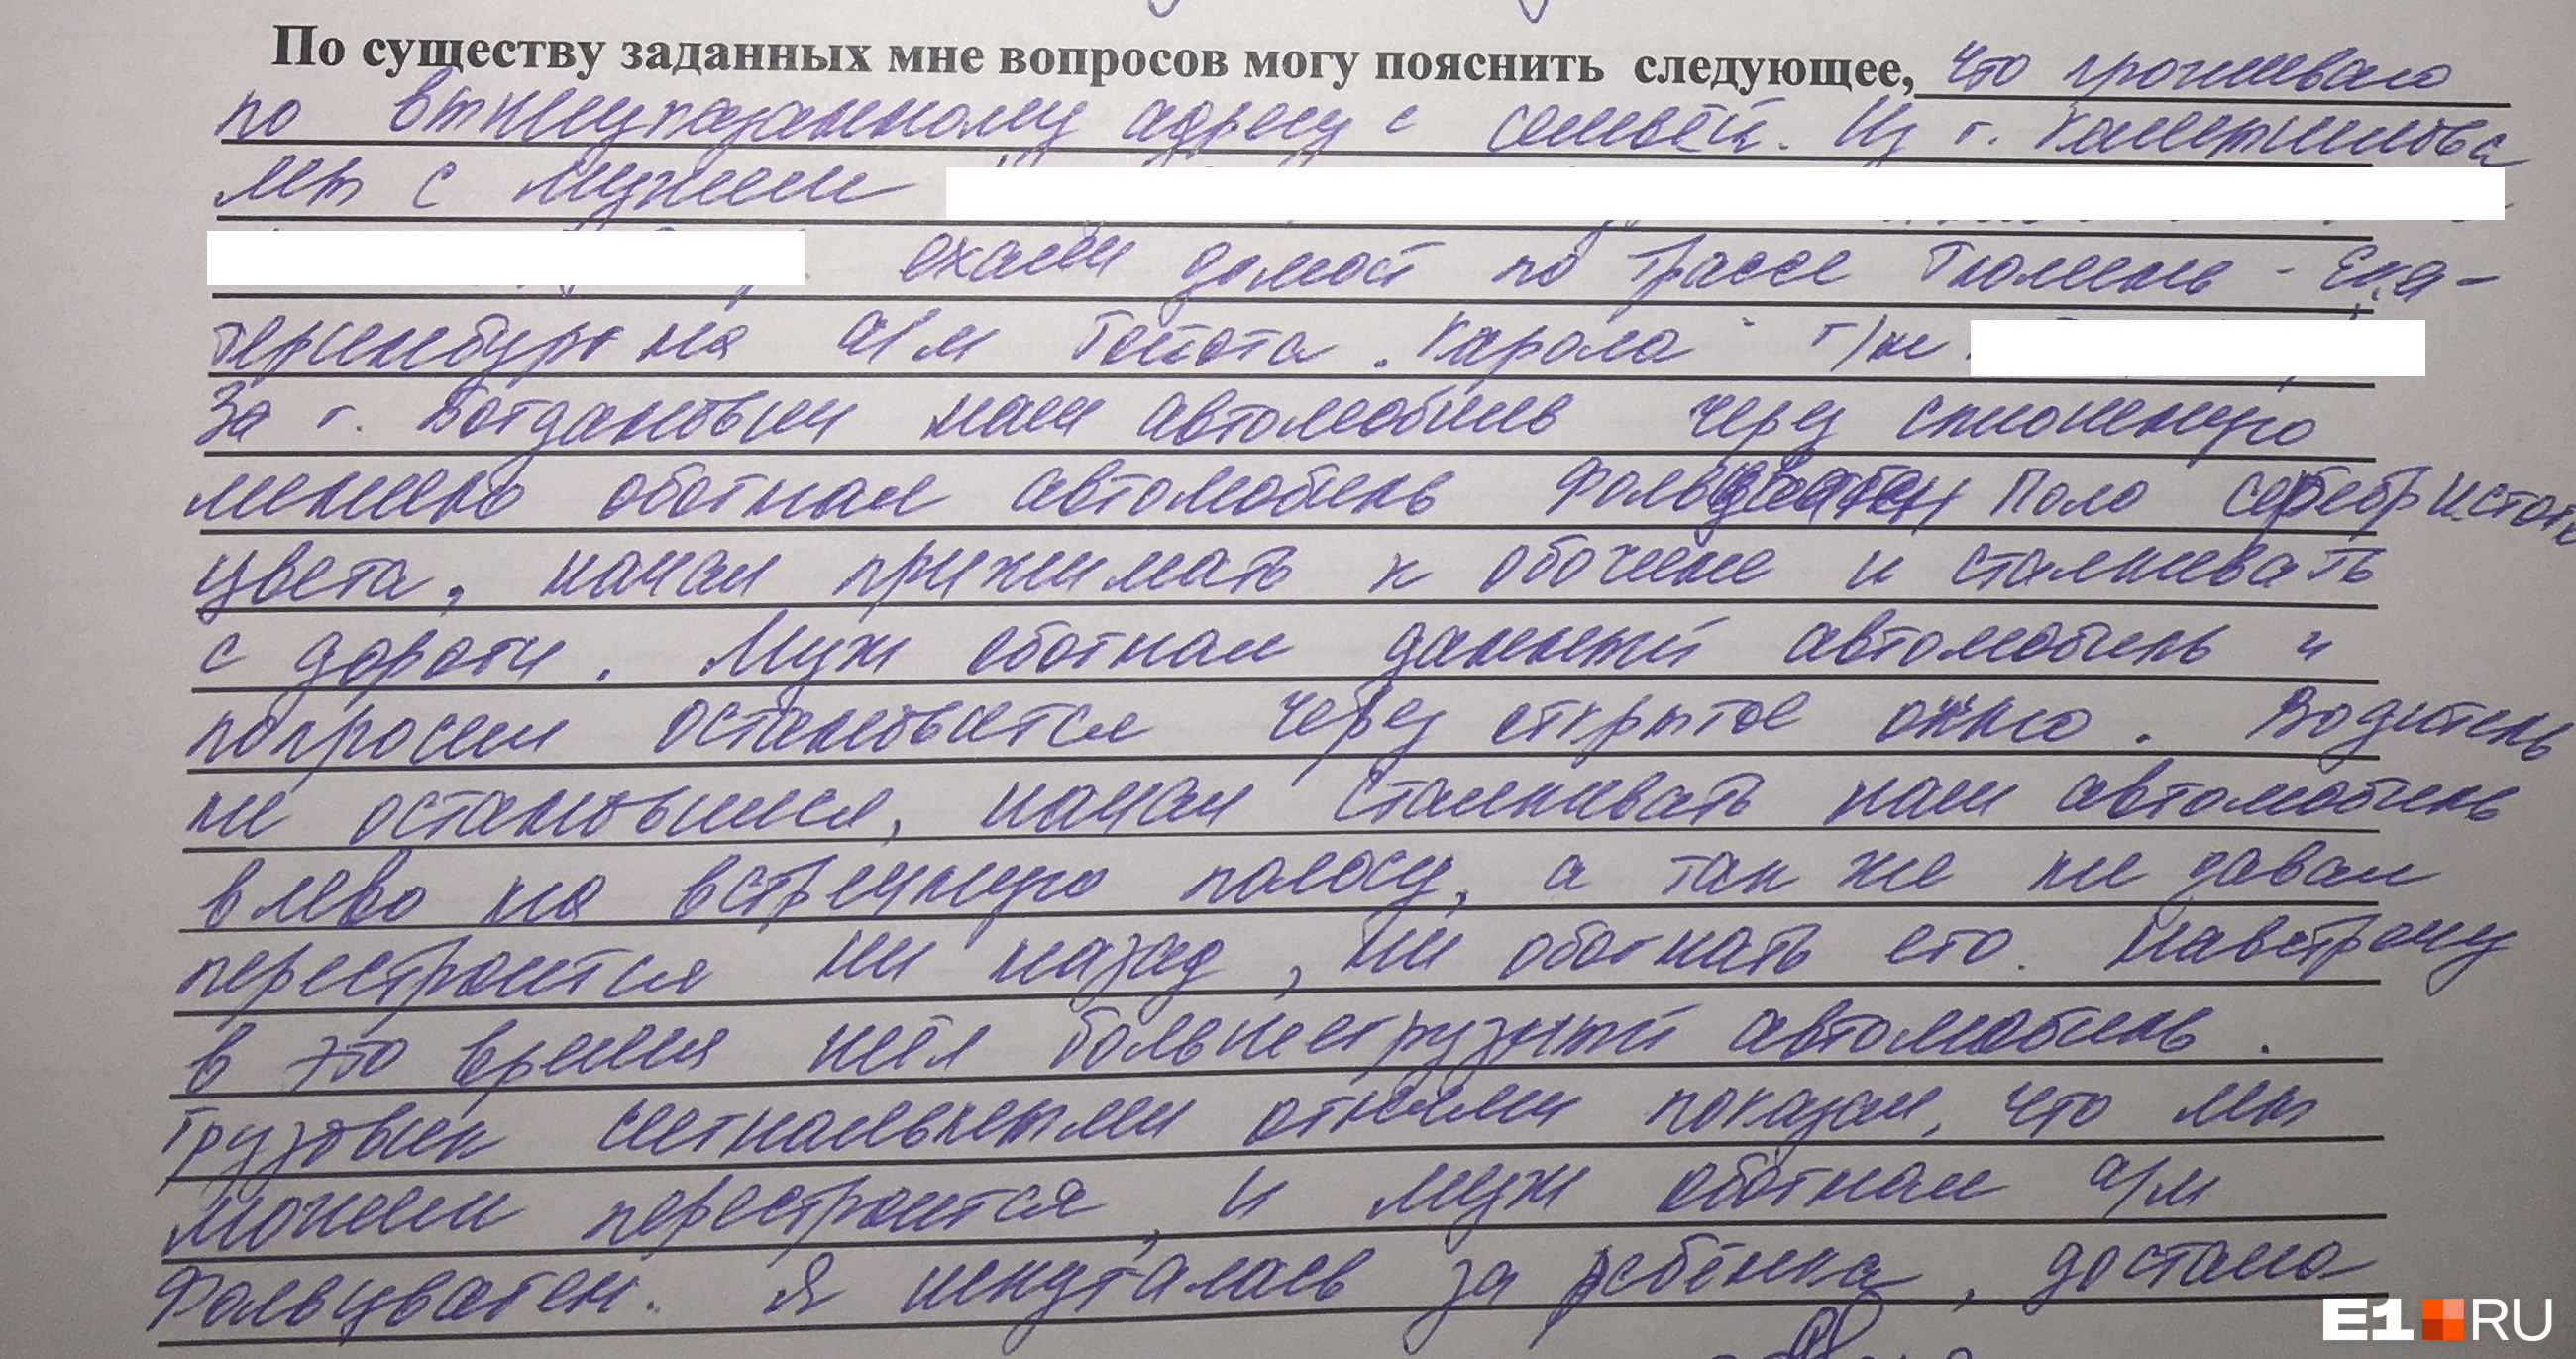 По существу заданных мне вопросов могу пояснить следующее, что проживаю
по вышеуказанному адресу с семьёй. Из г. Камышлова
мы с мужем
ехали домой по трассе Тюмень - Ека-
теринбург на а/м Тойота "Карола" г/н
За г. Богданович наш автомобиль через сплошную
линию обогнал автомобиль Фольцваген Поло серебристого
цвета, начал прижимать к обочине и сталкивать
с дороги. Муж обогнал данный автомобиль и
попросил остановится через открытое окно. Водитель
не остановился, начал сталкивать наш автомобиль
влево на встречную полосу, а так же не давал
перестроится ни назад, ни обогнать его. Навстречу
в это время шёл большегрузный автомобиль.
Грузовик сигнальными огнями показал, что мы
можем перестроится, и муж обогнал а/м
Фольцваген. Я испугалась за ребёнка, достала
E1.RU